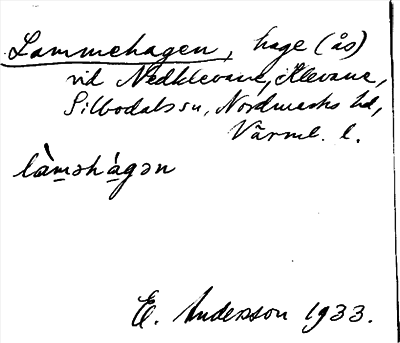 Lammehagen, hage (ås)
vid Nedklevane, Klevane,
Silbodals sn, Nordmarks hd,
Värml. l.
làmǝhágǝn
E. Anderson 1933.